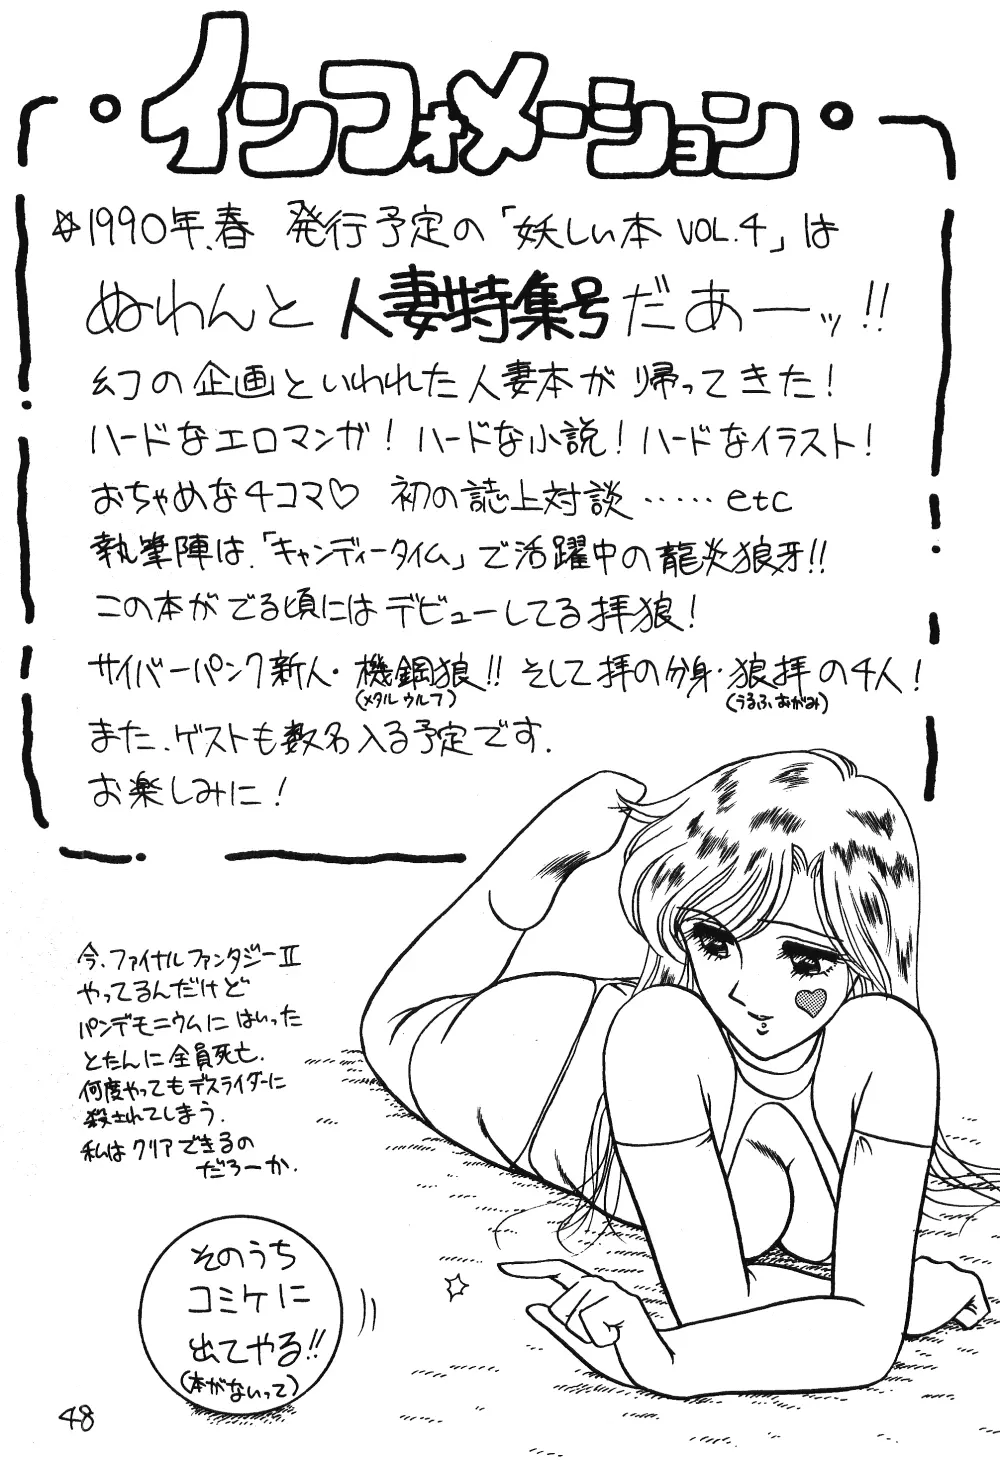 ・インフォメーション・
☆1990年、春 発行予定の「妖しい本 VOL.4」は
ぬわんと人妻特集号だあーッ!!
幻の企画といわれた人妻本が帰ってきた!
ハードなエロマンガ! ハードな小説! ハードなイラスト!
おちゃめな4コマ♡ 初の誌上対談……etc
執筆陣は、「キャンディータイム」で活躍中の龍炎狼牙!!
この本がでる頃にはデビューしてる拝狼!
サイバーパンク新人・機鋼狼!! そして拝の分身・狼拝の4人!
(メタルウルフ) (うるふおがみ)
また、ゲストも数名入る予定です.
お楽しみに!
今、ファイナルファンタジーⅡ
やってるんだけど
パンデモニウムにはいった
とたんに全員死亡.
何度やってもデスライダーに
殺されてしまう.
私はクリアできるの
だろーか.
そのうち
コミケに
出てやる!!
(本がないって)
48